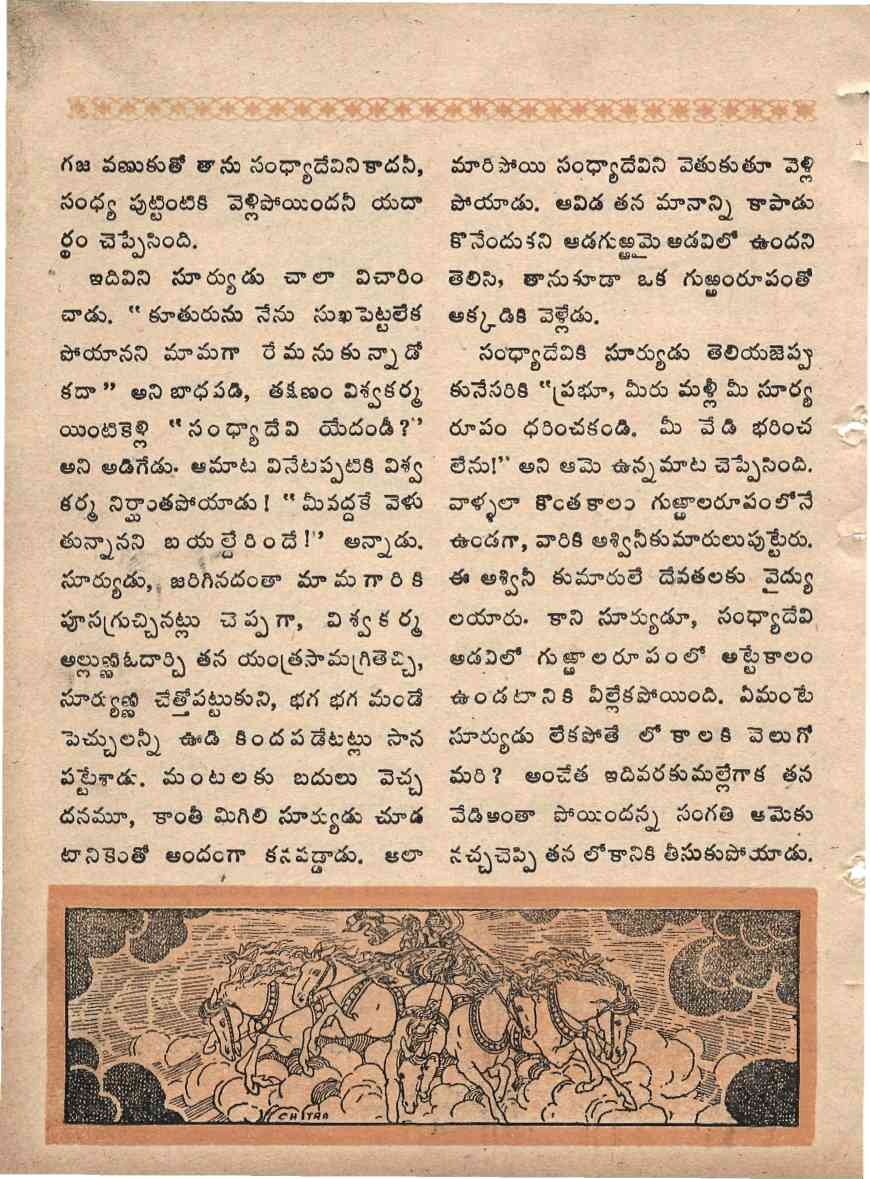 గజ వణుకుతో తాను సంధ్యాదేవినికాదనీ,
సంధ్య పుట్టింటికి వెళ్లిపోయిందనీ యదా
ర్థం చెప్పేసింది.
ఇదివిని సూర్యుడు చాలా విచారిం
చాడు. “కూతురును నేను సుఖపెట్టలేక
పోయానని మామగా రేమనుకున్నాడో
కదా” అని బాధపడి, తక్షణం విశ్వకర్మ
యింటికెళ్లి “సంధ్యాదేవి యేదండీ?”
అని అడిగేడు. ఆమాట వినేటప్పటికి విశ్వ
కర్మ నిర్ఘాంతపోయాడు! “మీవద్దకే వెళు
తున్నానని బయల్దేరిందే!” అన్నాడు.
సూర్యుడు, జరిగినదంతా మామగారికి
పూసగ్రుచ్చినట్లు చెప్పగా, విశ్వకర్మ
అల్లుణ్ణిఓదార్చి తన యంత్రసామగ్రితెచ్చి,
సూర్యుణ్ణి చేత్తోపట్టుకుని, భగ భగ మండే
పెచ్చులన్నీ ఊడి కిందపడేటట్లు సాన
పట్టేశాడు. మంటలకు బదులు వెచ్చ
దనమూ, కాంతీ మిగిలి సూర్యుడు చూడ
టానికెంతో అందంగా కనపడ్డాడు. అలా
మారిపోయి సంధ్యాదేవిని వెతుకుతూ వెళ్లి
పోయాడు. ఆవిడ తన మానాన్ని కాపాడు
కొనేందుకని ఆడగుఱ్ఱమై అడవిలో ఉందని
తెలిసి, తానుకూడా ఒక గుఱ్ఱంరూపంతో
అక్కడికి వెళ్లేడు.
సంధ్యాదేవికి సూర్యుడు తెలియజెప్పు
కునేసరికి “ప్రభూ, మీరు మళ్లీ మీ సూర్య
రూపం ధరించకండి. మీ వేడి భరించ
లేను!” అని ఆమె ఉన్నమాట చెప్పేసింది.
వాళ్ళలా కొంతకాలం గుఱ్ఱాలరూపంలోనే
ఉండగా, వారికి అశ్వినీకుమారులుపుట్టేరు.
ఈ అశ్వినీ కుమారులే దేవతలకు వైద్యు
లయారు. కాని సూర్యుడూ, సంధ్యాదేవి
అడవిలో గుఱ్ఱాలరూపంలో అట్టేకాలం
ఉండటానికి వీల్లేకపోయింది. ఏమంటే
సూర్యుడు లేకపోతే లోకాలకి వెలుగో
మరి? అంచేత ఇదివరకుమల్లేగాక తన
వేడిఅంతా పోయిందన్న సంగతి ఆమెకు
నచ్చచెప్పి తన లోకానికి తీసుకుపోయాడు.
CHITRA